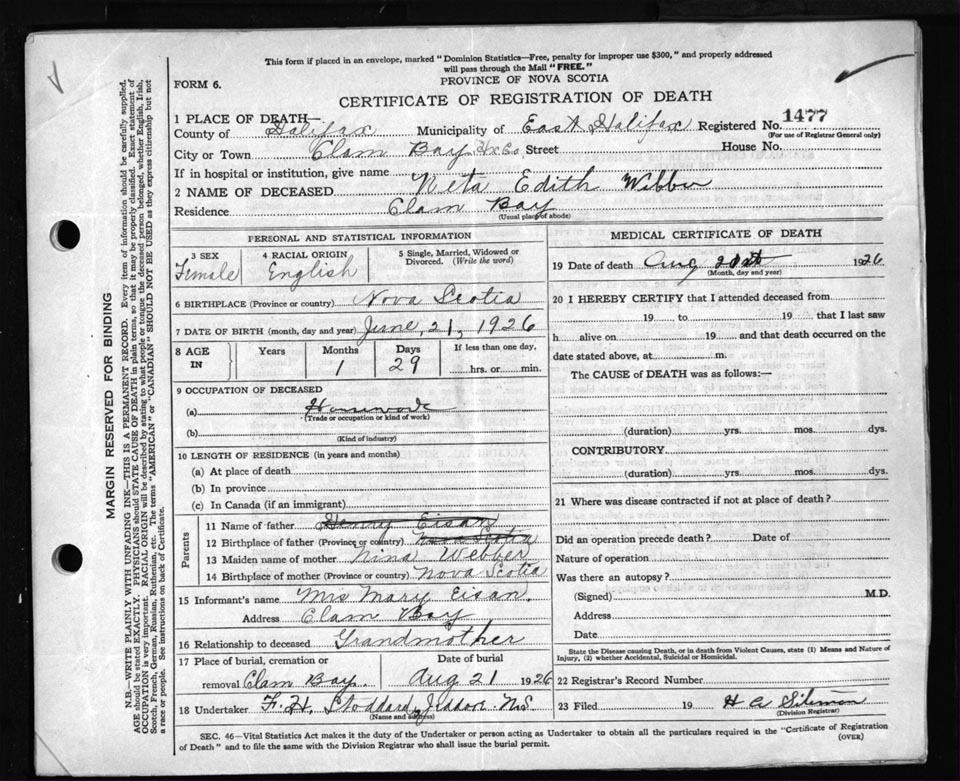 This form if placed in an envelope, marked "Dominion Statistics—Free, penalty for improper use $300," and properly addressed
will pass through the Mail "FREE."
FORM 6.
PROVINCE OF NOVA SCOTIA
CERTIFICATE OF REGISTRATION OF DEATH
1 PLACE OF DEATH—
County of Halifax Municipality of East Halifax Registered No. 1477
(For use of Registrar General only)
City or Town Clam Bay Hx Co, Street House No.
If in hospital or institution, give name
2 NAME OF DECEASED Neta Edith Webber
Residence Clam Bay
(Usual place of abode)
PERSONAL AND STATISTICAL INFORMATION
3 SEX Female
4 RACIAL ORIGIN English
5 Single, Married, Widowed or Divorced. (Write the word)
6 BIRTHPLACE (Province or country) Nova Scotia
7 DATE OF BIRTH (month, day and year) June, 21, 1926
8 AGE IN Years Months 1 Days 29 If less than one day, hrs. or min.
9 OCCUPATION OF DECEASED
(a)
(Trade or occupation or kind of work)
(b)
(Kind of industry)
10 LENGTH OF RESIDENCE (in years and months)
(a) At place of death
(b) In province
(c) In Canada (if an immigrant)
Parents
11 Name of father Henry Eisan
12 Birthplace of father (Province or country) Nova Scotia
13 Maiden name of mother Nina Webber
14 Birthplace of mother (Province or country) Nova Scotia
15 Informant's name Mrs Mary Eisan,
Address Clam Bay
16 Relationship to deceased Grandmother
17 Place of burial, cremation or removal Clam Bay. Date of burial Aug 21 1926
18 Undertaker F. H. Stoddard, Jeddore N.S.
(Name and address)
MEDICAL CERTIFICATE OF DEATH
19 Date of death Aug 20th 1926
(Month, day and year)
20 I HEREBY CERTIFY that I attended deceased from
19 to 19 that I last saw
h alive on 19 and that death occurred on the
date stated above, at m.
The CAUSE of DEATH was as follows:—
(duration) yrs. mos. dys.
CONTRIBUTORY
(duration) yrs. mos. dys.
21 Where was disease contracted if not at place of death?
Did an operation precede death? Date of
Nature of operation
Was there an autopsy?
(Signed) M.D.
Address
Date
State the Disease causing Death, or in death from Violent Causes, state (1) Means and Nature of
Injury, (2) whether Accidental, Suicidal or Homicidal.
22 Registrar's Record Number
23 Filed 19 H A
(Division Registrar)
SEC. 46—Vital Statistics Act makes it the duty of the Undertaker or person acting as Undertaker to obtain all the particulars required in the "Certificate of Registration
of Death" and to file the same with the Division Registrar who shall issue the burial permit.
(OVER)
MARGIN RESERVED FOR BINDING
N.B.—WRITE PLAINLY WITH UNFADING INK—THIS IS A PERMANENT RECORD. Every item of information should be carefully supplied.
AGE should be stated EXACTLY. PHYSICIANS should STATE CAUSE OF DEATH in plain terms, so that it may be properly classified. Exact statement of
OCCUPATION is very important. RACIAL ORIGIN will be described by stating to what people or tongue the deceased person belonged, whether English, Irish,
Scotch, French, German, Russian, Ruthenian, etc. The terms "AMERICAN" or "CANADIAN" SHOULD NOT BE USED as they express citizenship but not
a race or people. See instructions on back of Certificate.